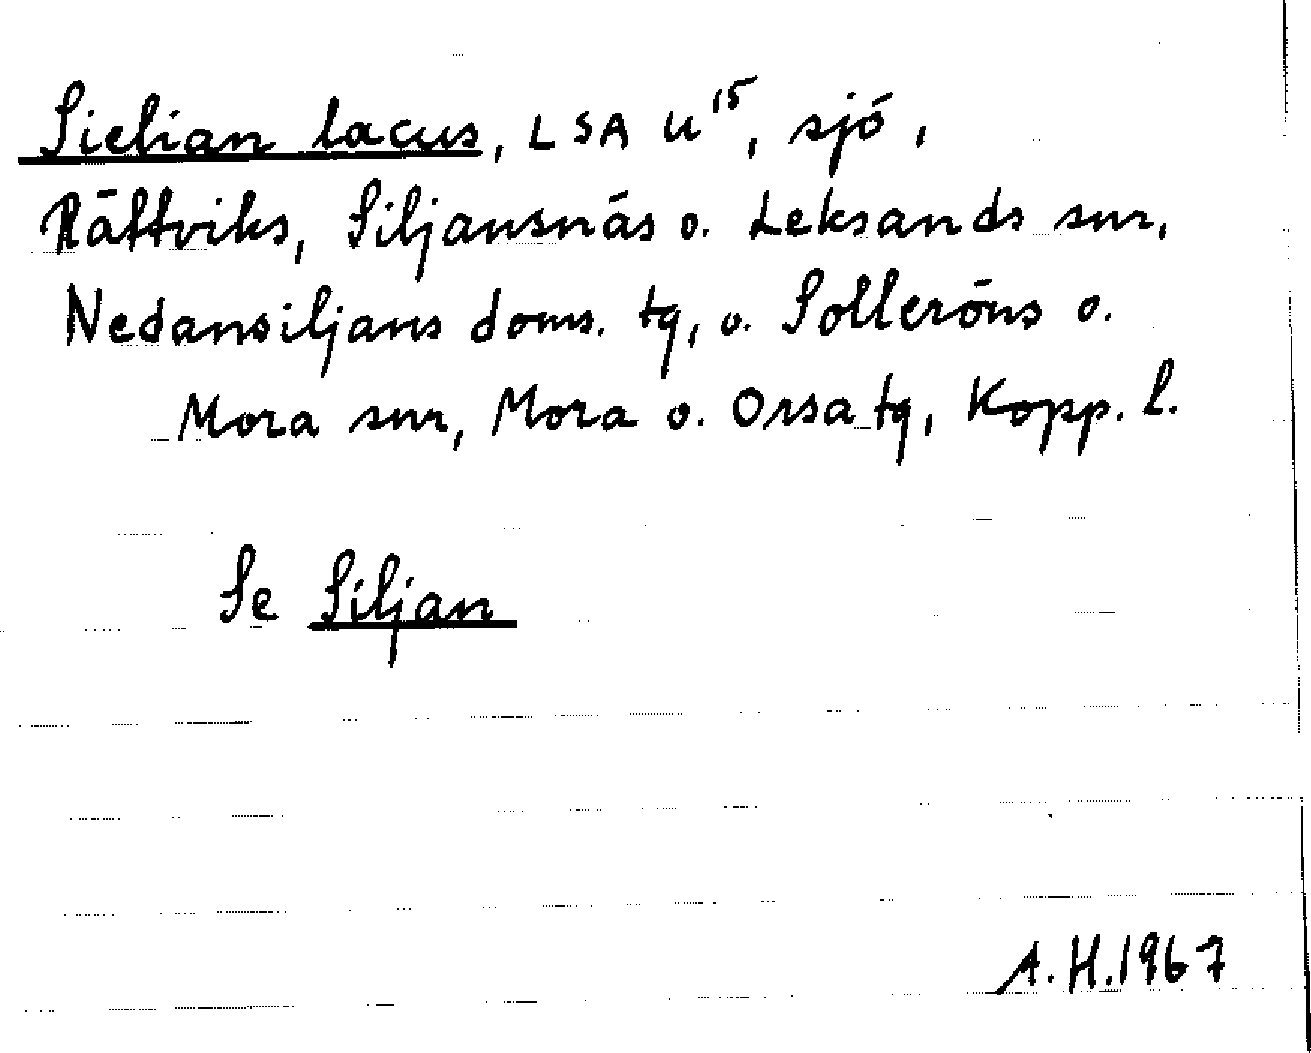 Sielian lacus, LSA U¹⁵, sjö,
Rättviks, Siljansnäs o. Leksands snr,
Nedansiljans doms. tg, o. Solleröns o.
Mora snr, Mora o. Orsa tg, Kopp. l.
Se Siljan
A.H.1967